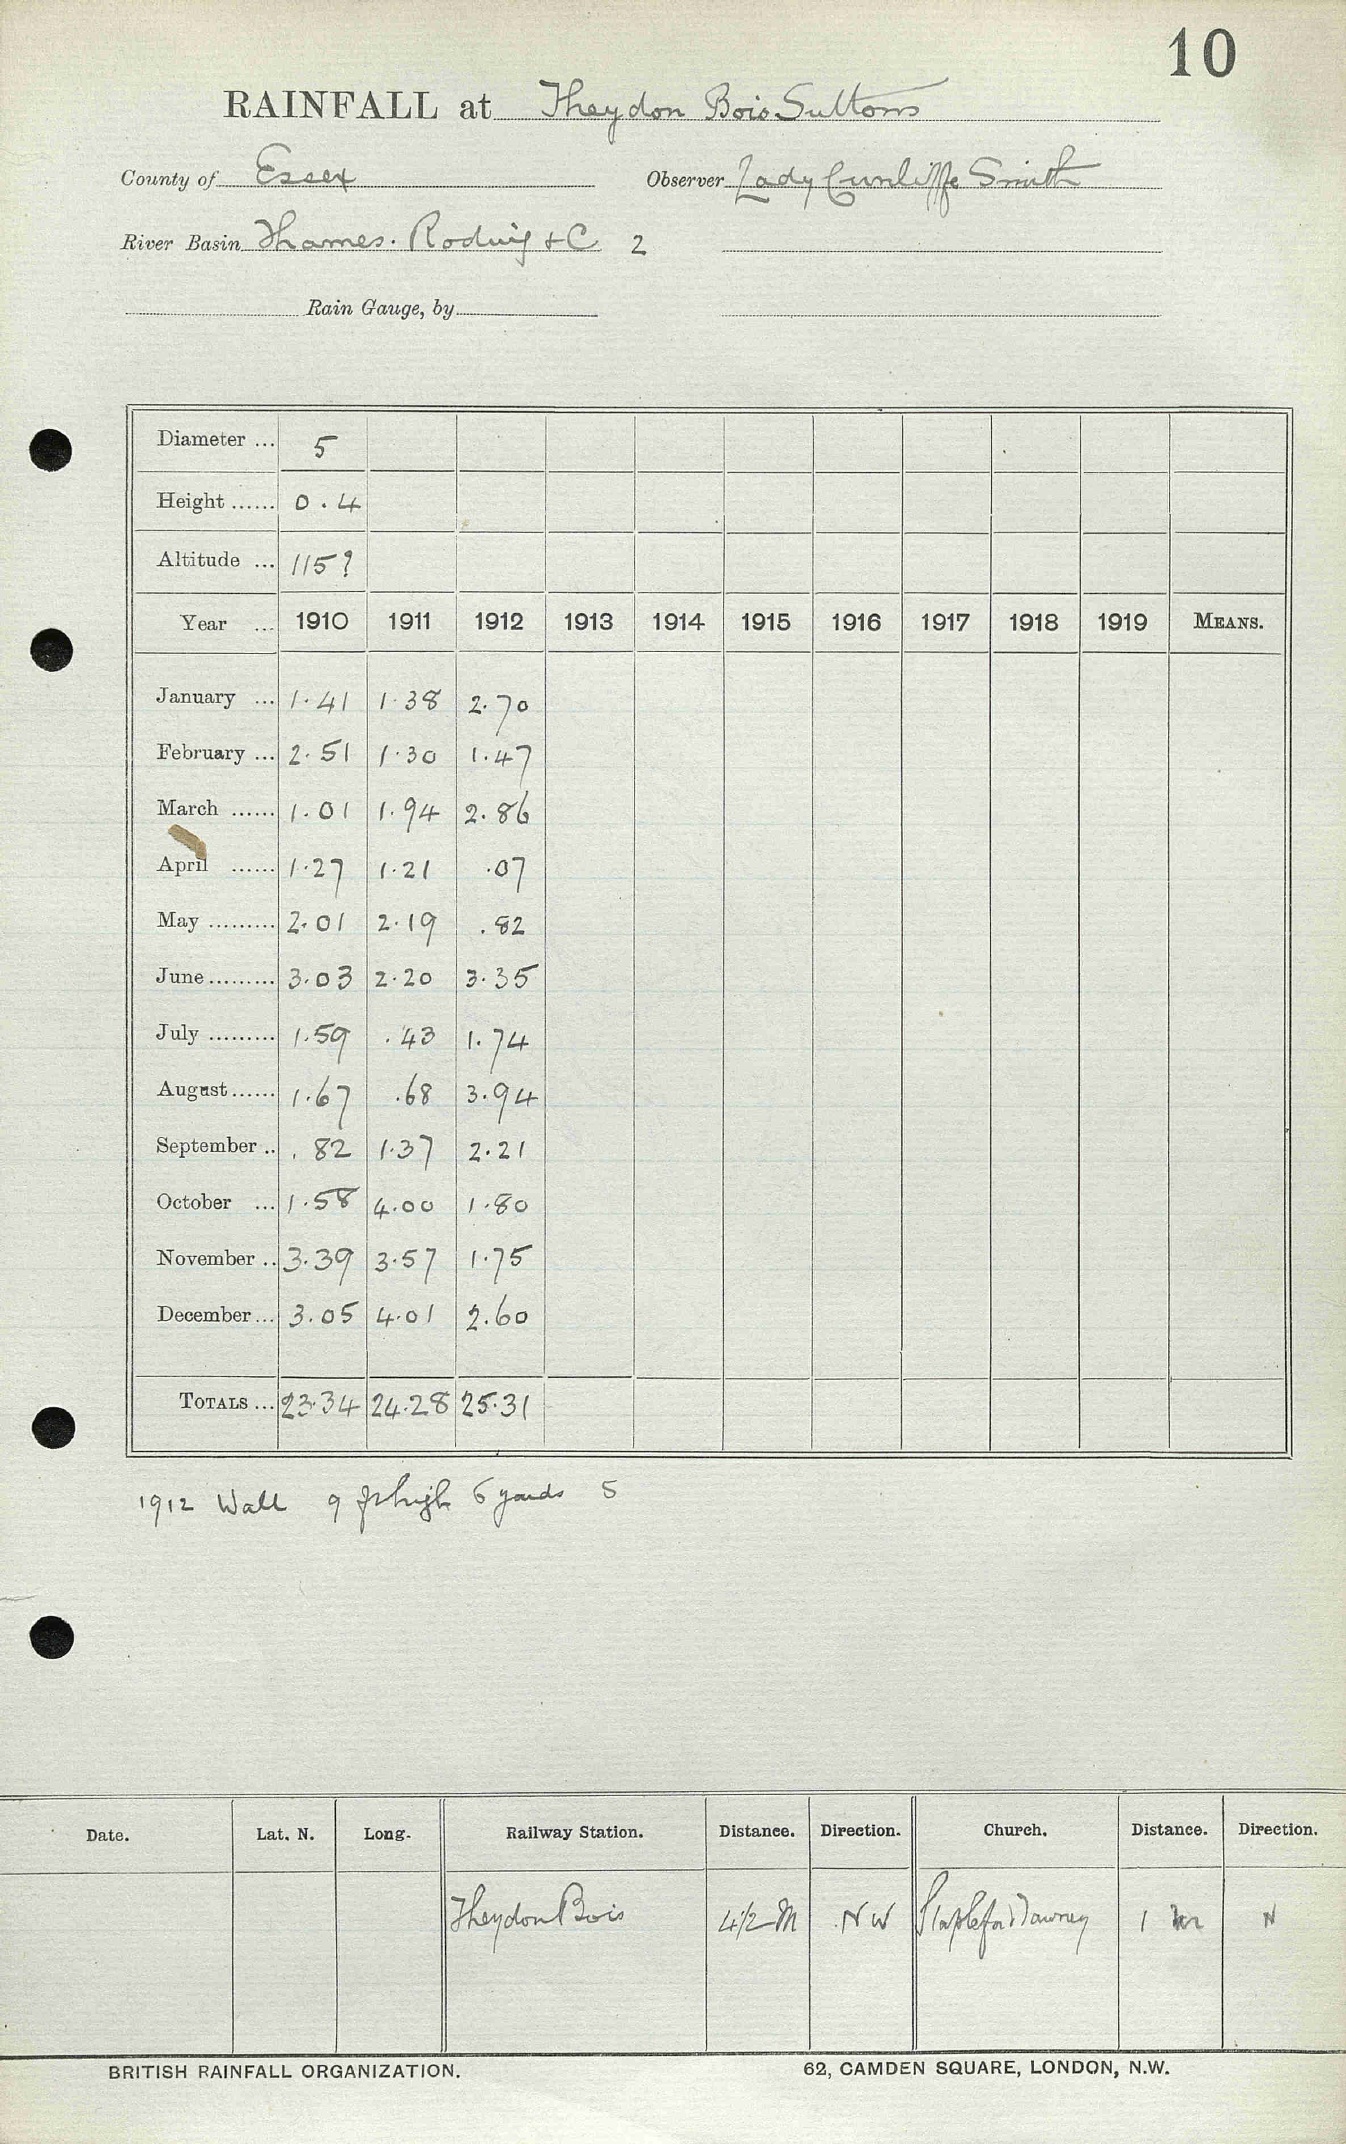 10
RAINFALL at Theydon Bois Suttons
County of Essex Observer Lady Cunliffe Smith
River Basin Thames. Roding + C 2
Rain Gauge, by
Diameter ... 5
Height ...... 0.4
Altitude ... 115?
Year ... 1910 1911 1912 1913 1914 1915 1916 1917 1918 1919 MEANS.
January ... 1.41 1.38 2.70
February ... 2.51 1.30 1.47
March ...... 1.01 1.94 2.86
April ...... 1.27 1.21 .07
May ......... 2.01 2.19 .82
June ......... 3.03 2.20 3.35
July ......... 1.59 .43 1.74
August ...... 1.67 .68 3.94
September .. .82 1.37 2.21
October ... 1.58 4.00 1.80
November .. 3.39 3.57 1.75
December ... 3.05 4.01 2.60
TOTALS ... 23.34 24.28 25.31
1912 Wall 9 ft high 6 yards S
Date. Lat. N. Long. Railway Station. Distance. Direction. Church. Distance. Direction.
Theydon Bois 4½ M NW Stapleford Tawney 1 m N
BRITISH RAINFALL ORGANIZATION. 62, CAMDEN SQUARE, LONDON, N.W.